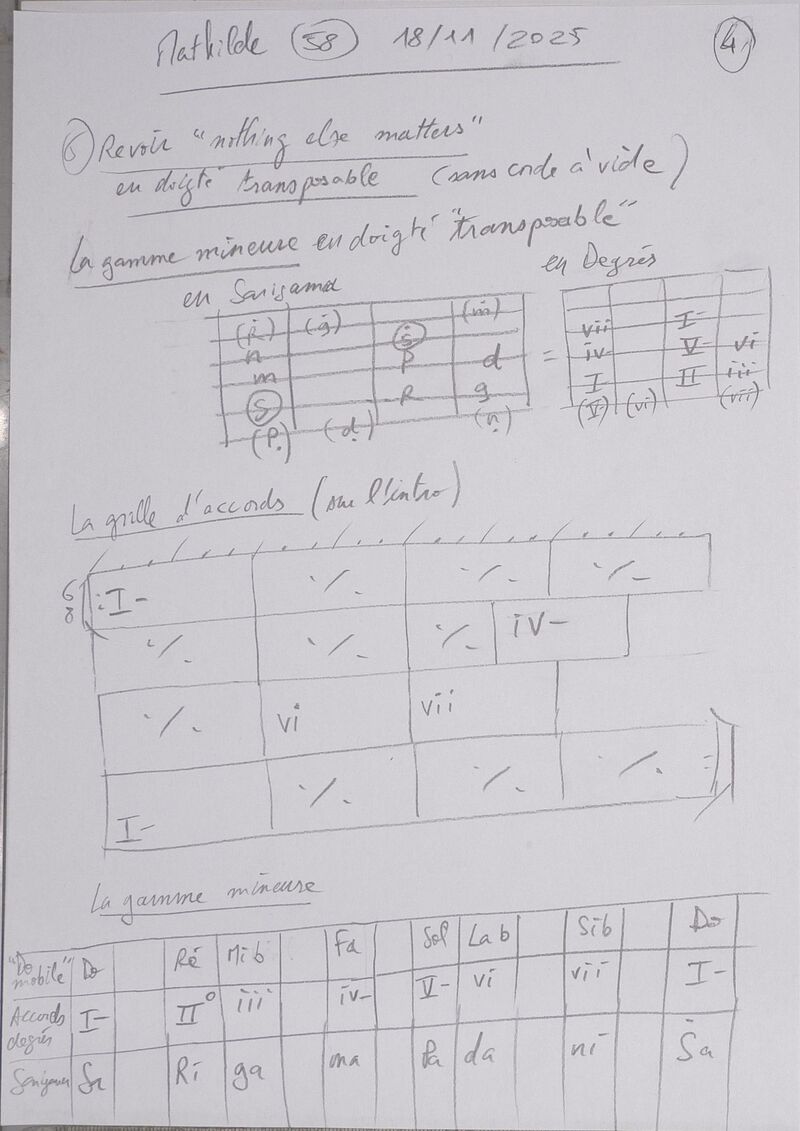 Mathilde 58 18/11/2025 4
6 Revoir "nothing else matters"
en doigté transposable (sans corde à vide)
La gamme mineure en doigté "transposable"
en Sarigama en Degrés
(Ṙ) (ġ) (ṁ)
n Ṡ
m P d
S R g
(P̣) (ḍ) (ṇ)
=
vii I-
iv- V- vi
I- II iii
(V-) (vi) (vii)
La grille d'accords (sur l'intro)
6
8
I- ٪ ٪ ٪
٪ ٪ ٪ iv-
٪ vi vii
I- ٪ ٪ ٪
La gamme mineure
"Do mobile" Do Ré Mib Fa Sol Lab Sib Do
Accords degrés I- II° iii iv- V- vi vii I-
Sarigama Sa Ri ga ma Pa da ni Ṡa